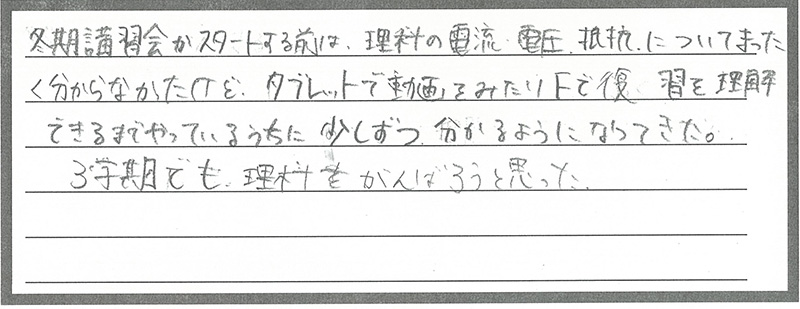 冬期講習会がスタートする前は、理科の電流、電圧、抵抗、についてまった
く分からなかったけど、タブレットで動画をみたりFで復習を理解
できるまでやっているうちに少しずつ、分かるようになってきた。
3学期でも、理科をがんばろうと思った。